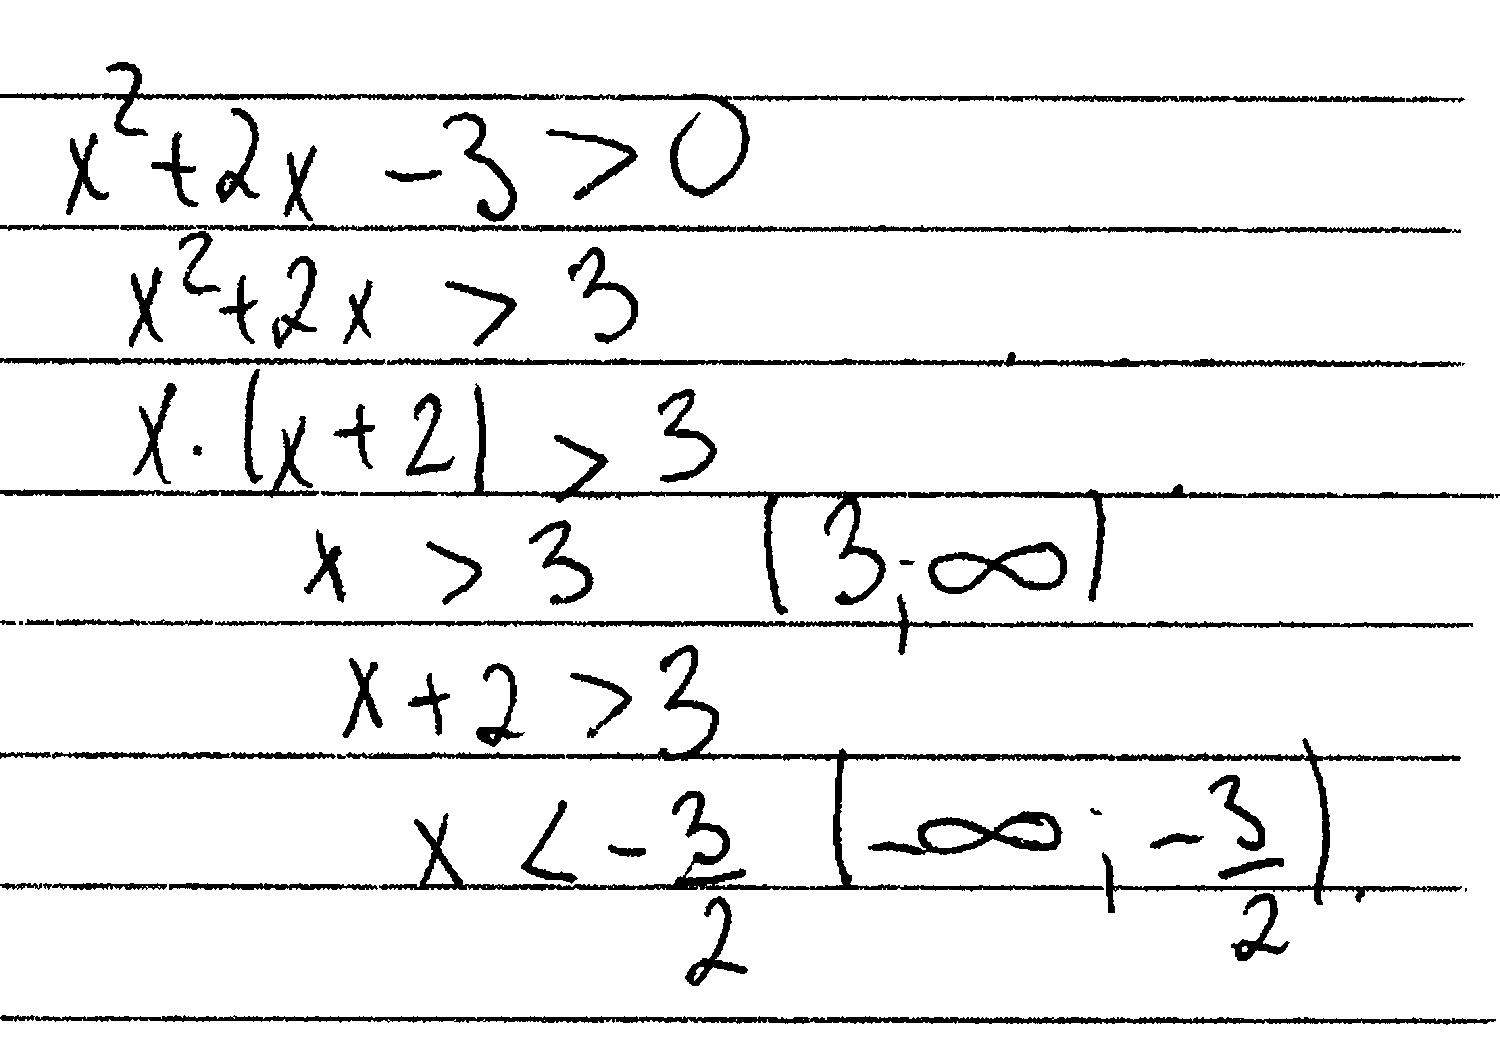 x² + 2x - 3 > 0
x² + 2x > 3
x · (x + 2) > 3
x > 3 (3; ∞)
x + 2 > 3
x < -3/2 (-∞; -3/2).